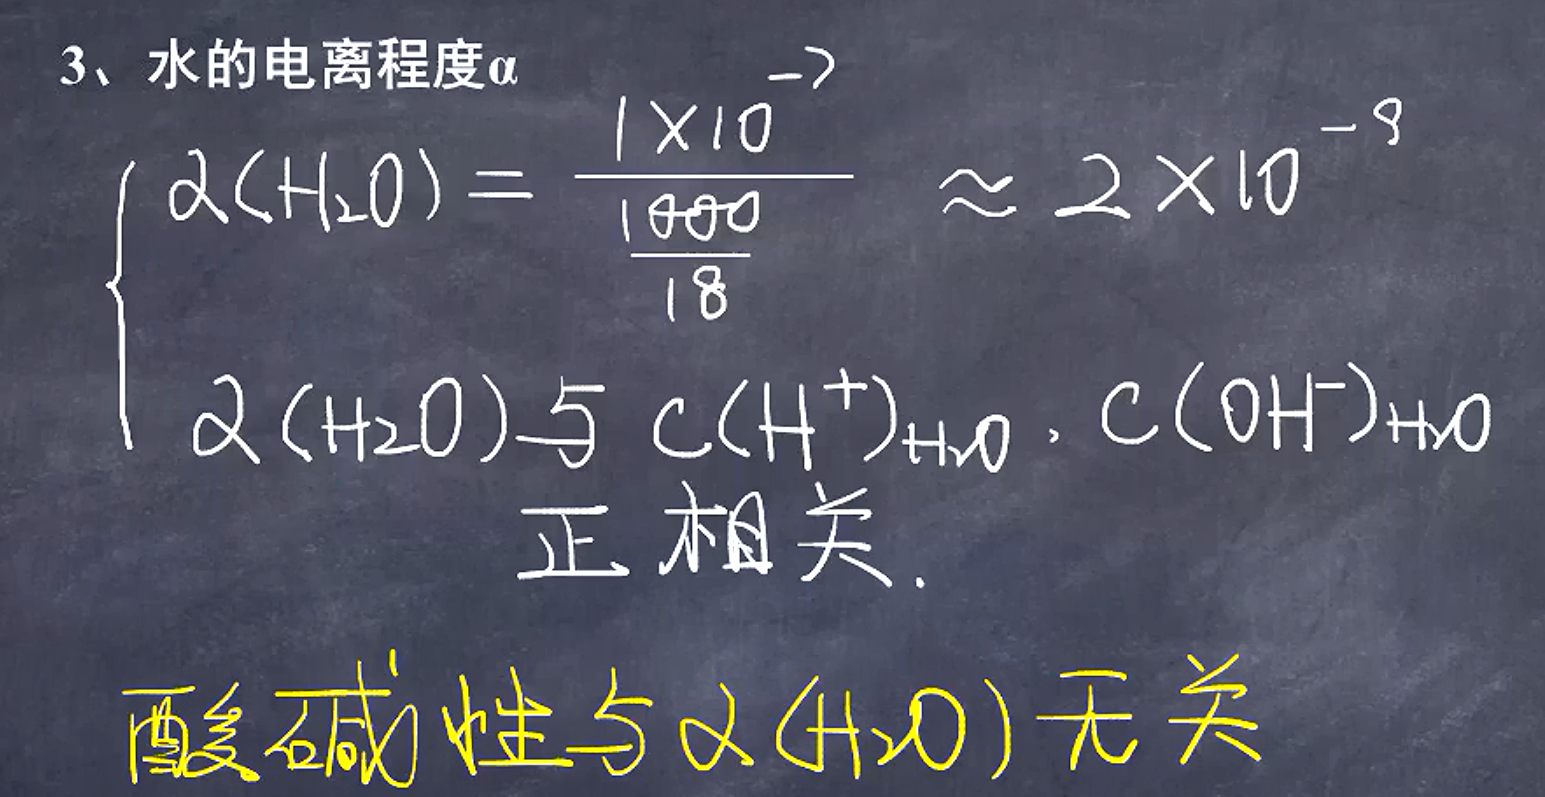 3、水的电离程度α
α(H₂O) = (1×10⁻⁷)/(1000/18) ≈ 2×10⁻⁹
α(H₂O)与 C(H⁺)H₂O、C(OH⁻)H₂O
正相关.
酸碱性与α(H₂O)无关